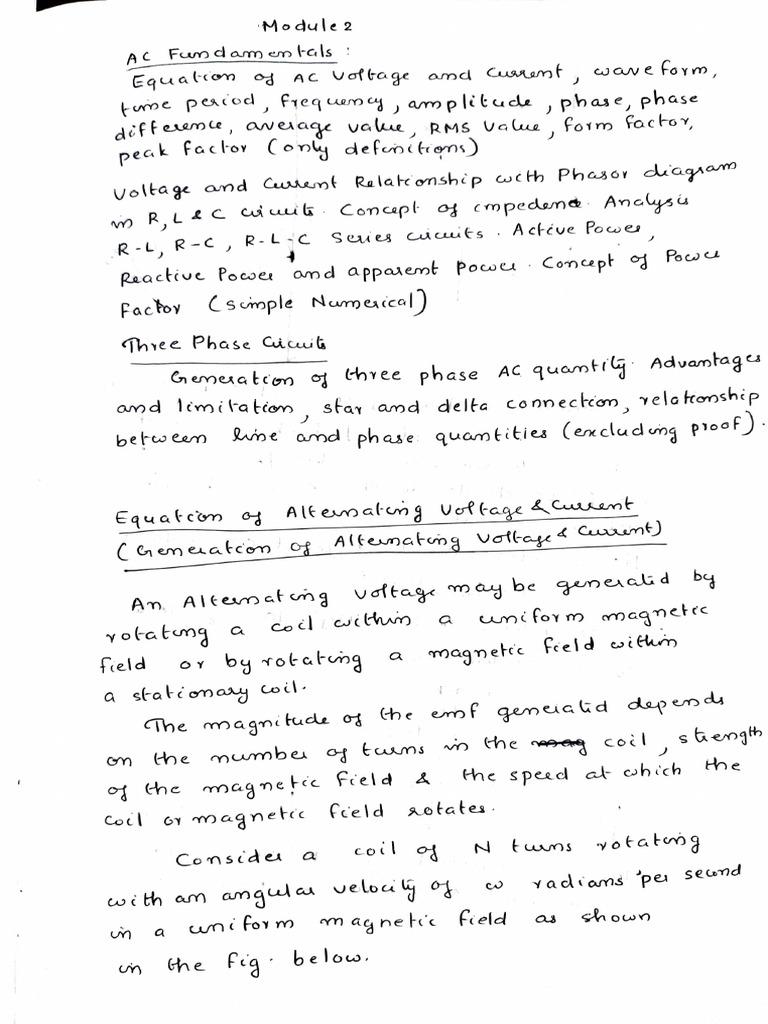 Module 2
AC Fundamentals :
Equation of AC Voltage and Current, waveform,
time period, frequency, amplitude, phase, phase
difference, average value, RMS value, form factor,
peak factor (only definitions)
Voltage and Current Relationship with Phasor diagram
in R, L & C circuits. Concept of impedence. Analysis
R-L, R-C, R-L-C Series circuits. Active Power,
Reactive Power and apparent power. Concept of Power
Factor (Simple Numerical)
Three Phase Circuits
Generation of three phase AC quantity. Advantages
and limitation, star and delta connection, relationship
between line and phase quantities (excluding proof).
Equation of Alternating Voltage & Current
(Generation of Alternating Voltage & Current)
An Alternating Voltage may be generated by
rotating a coil within a uniform magnetic
field or by rotating a magnetic field within
a stationary coil.
The magnitude of the emf generated depends
on the number of turns in the coil, strength
of the magnetic field & the speed at which the
coil or magnetic field rotates.
Consider a coil of N turns rotating
with an angular velocity of ω radians per second
in a uniform magnetic field as shown
in the fig. below.